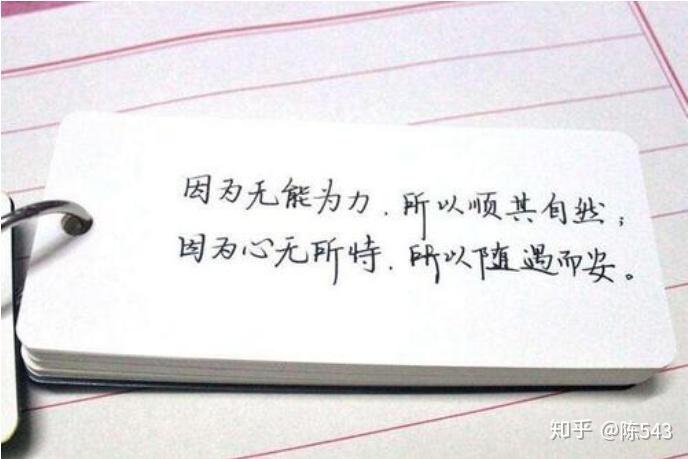 因为无能为力，所以顺其自然；
因为心无所恃，所以随遇而安。
知乎 @陈543